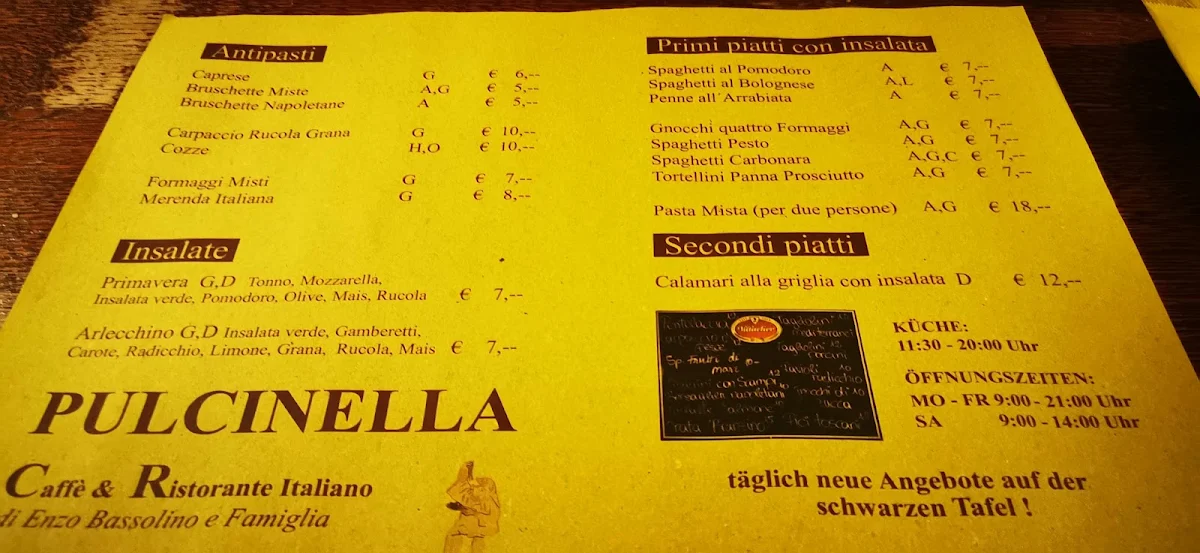 Antipasti
Caprese G € 6,--
Bruschette Miste A,G € 5,--
Bruschette Napoletane A € 5,--
Carpaccio Rucola Grana G € 10,--
Cozze H,O € 10,--
Formaggi Misti G € 7,--
Merenda Italiana G € 8,--
Insalate
Primavera G,D Tonno, Mozzarella,
Insalata verde, Pomodoro, Olive, Mais, Rucola € 7,--
Arlecchino G,D Insalata verde, Gamberetti,
Carote, Radicchio, Limone, Grana, Rucola, Mais € 7,--
PULCINELLA
Caffè & Ristorante Italiano
di Enzo Bassolino e Famiglia
Primi piatti con insalata
Spaghetti al Pomodoro A € 7,--
Spaghetti al Bolognese A,L € 7,--
Penne all´Arrabiata A € 7,--
Gnocchi quattro Formaggi A,G € 7,--
Spaghetti Pesto A,G € 7,--
Spaghetti Carbonara A,G,C € 7,--
Tortellini Panna Prosciutto A,G € 7,--
Pasta Mista (per due persone) A,G € 18,--
Secondi piatti
Calamari alla griglia con insalata D € 12,--
KÜCHE:
11:30 - 20:00 Uhr
ÖFFNUNGSZEITEN:
MO - FR 9:00 - 21:00 Uhr
SA 9:00 - 14:00 Uhr
täglich neue Angebote auf der
schwarzen Tafel !